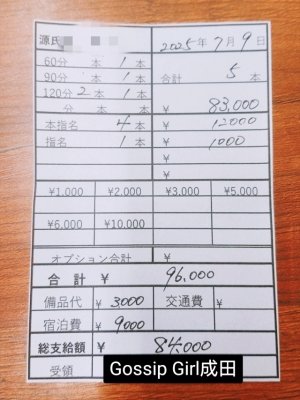 源氏 2025年7月9日
60分 本 1本
90分 本 1本 合計 5本
120分 2本 1本
分 本 本 ¥ 83,000
本指名 4本 ¥ 12000
指名 1本 ¥ 1000
¥
¥
¥1,000 ¥2,000 ¥3,000 ¥5,000
¥6,000 ¥10,000
オプション合計 ¥
合計 ¥ 96,000
備品代 ¥ 3000 交通費 ¥
宿泊費 ¥ 9000 ¥
総支給額 ¥ 84,000
受領
Gossip Girl成田